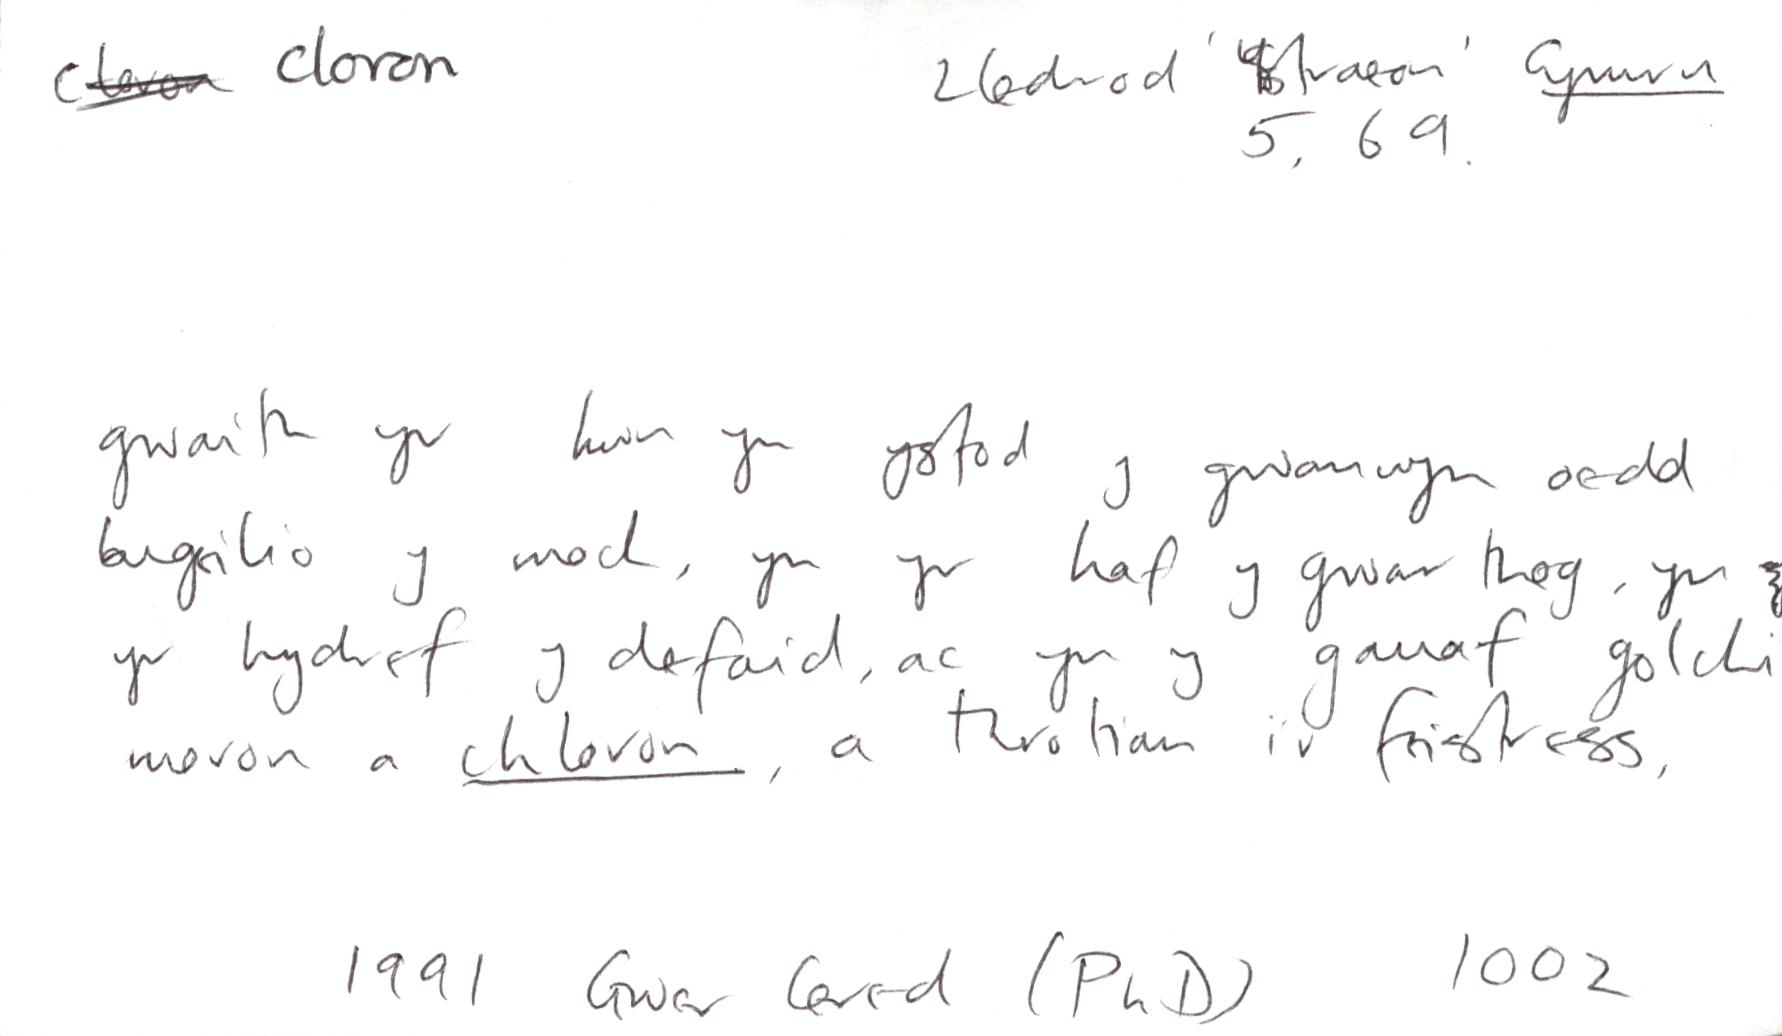 cloron Lledrod 'Ystraeon' Cymru
5, 69.
gwaith yr hwn yn ystod y gwanwyn oedd
bugeilio y moch, yn yr haf y gwartheg, yn
yr hydref y defaid, ac yn y gauaf golchi
moron a chloron, a throtian i'r feistress,
1991 Gwer Cered (PhD) 1002